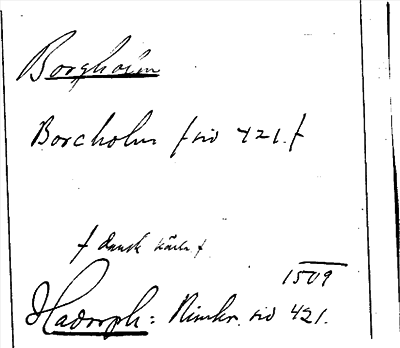 Borgholm
Borcholm / sid 421. /
/ dansk källa /
1509
Hadorph: Rimkr. sid 421.